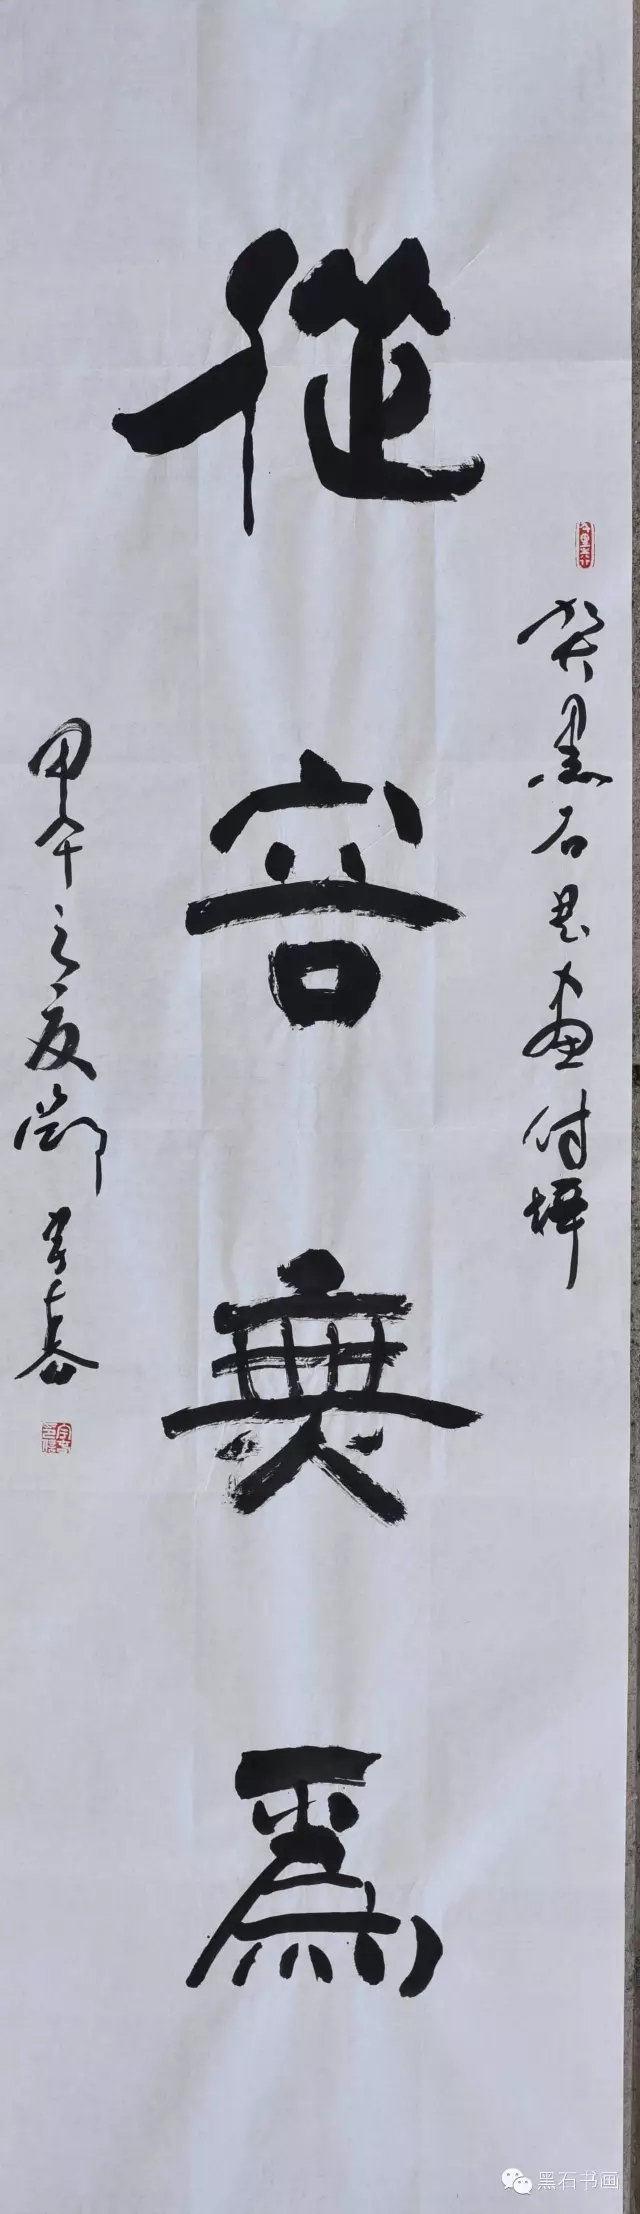 從容無為
黑石書畫付坪
甲午之夏鄧書春
黑石书画